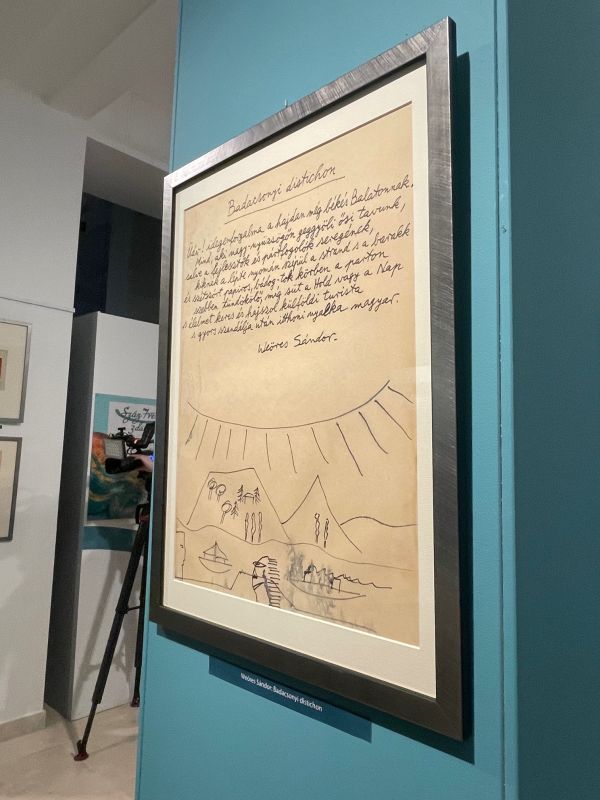 Badacsonyi distichon
Üdv! idegenforgalma a hajdan még békés Balatonnak.
Mind, aki nagy-nyüzsögőn gaggyöli ősi tavunk,
salve a fejlesztők és partfoglalók seregének,
kiknek a lépte nyomán szépül a strand s a barakk
és szétszórt papiros, bádog-tok körben a parton
szebben tündöklő, míg süt a Hold vagy a Nap
s élelmet keres és hajszol külföldi turista
s gyors szandálja után itthoni nyalka magyar.
Weöres Sándor.
Weöres Sándor: Badacsonyi distichon
Száz